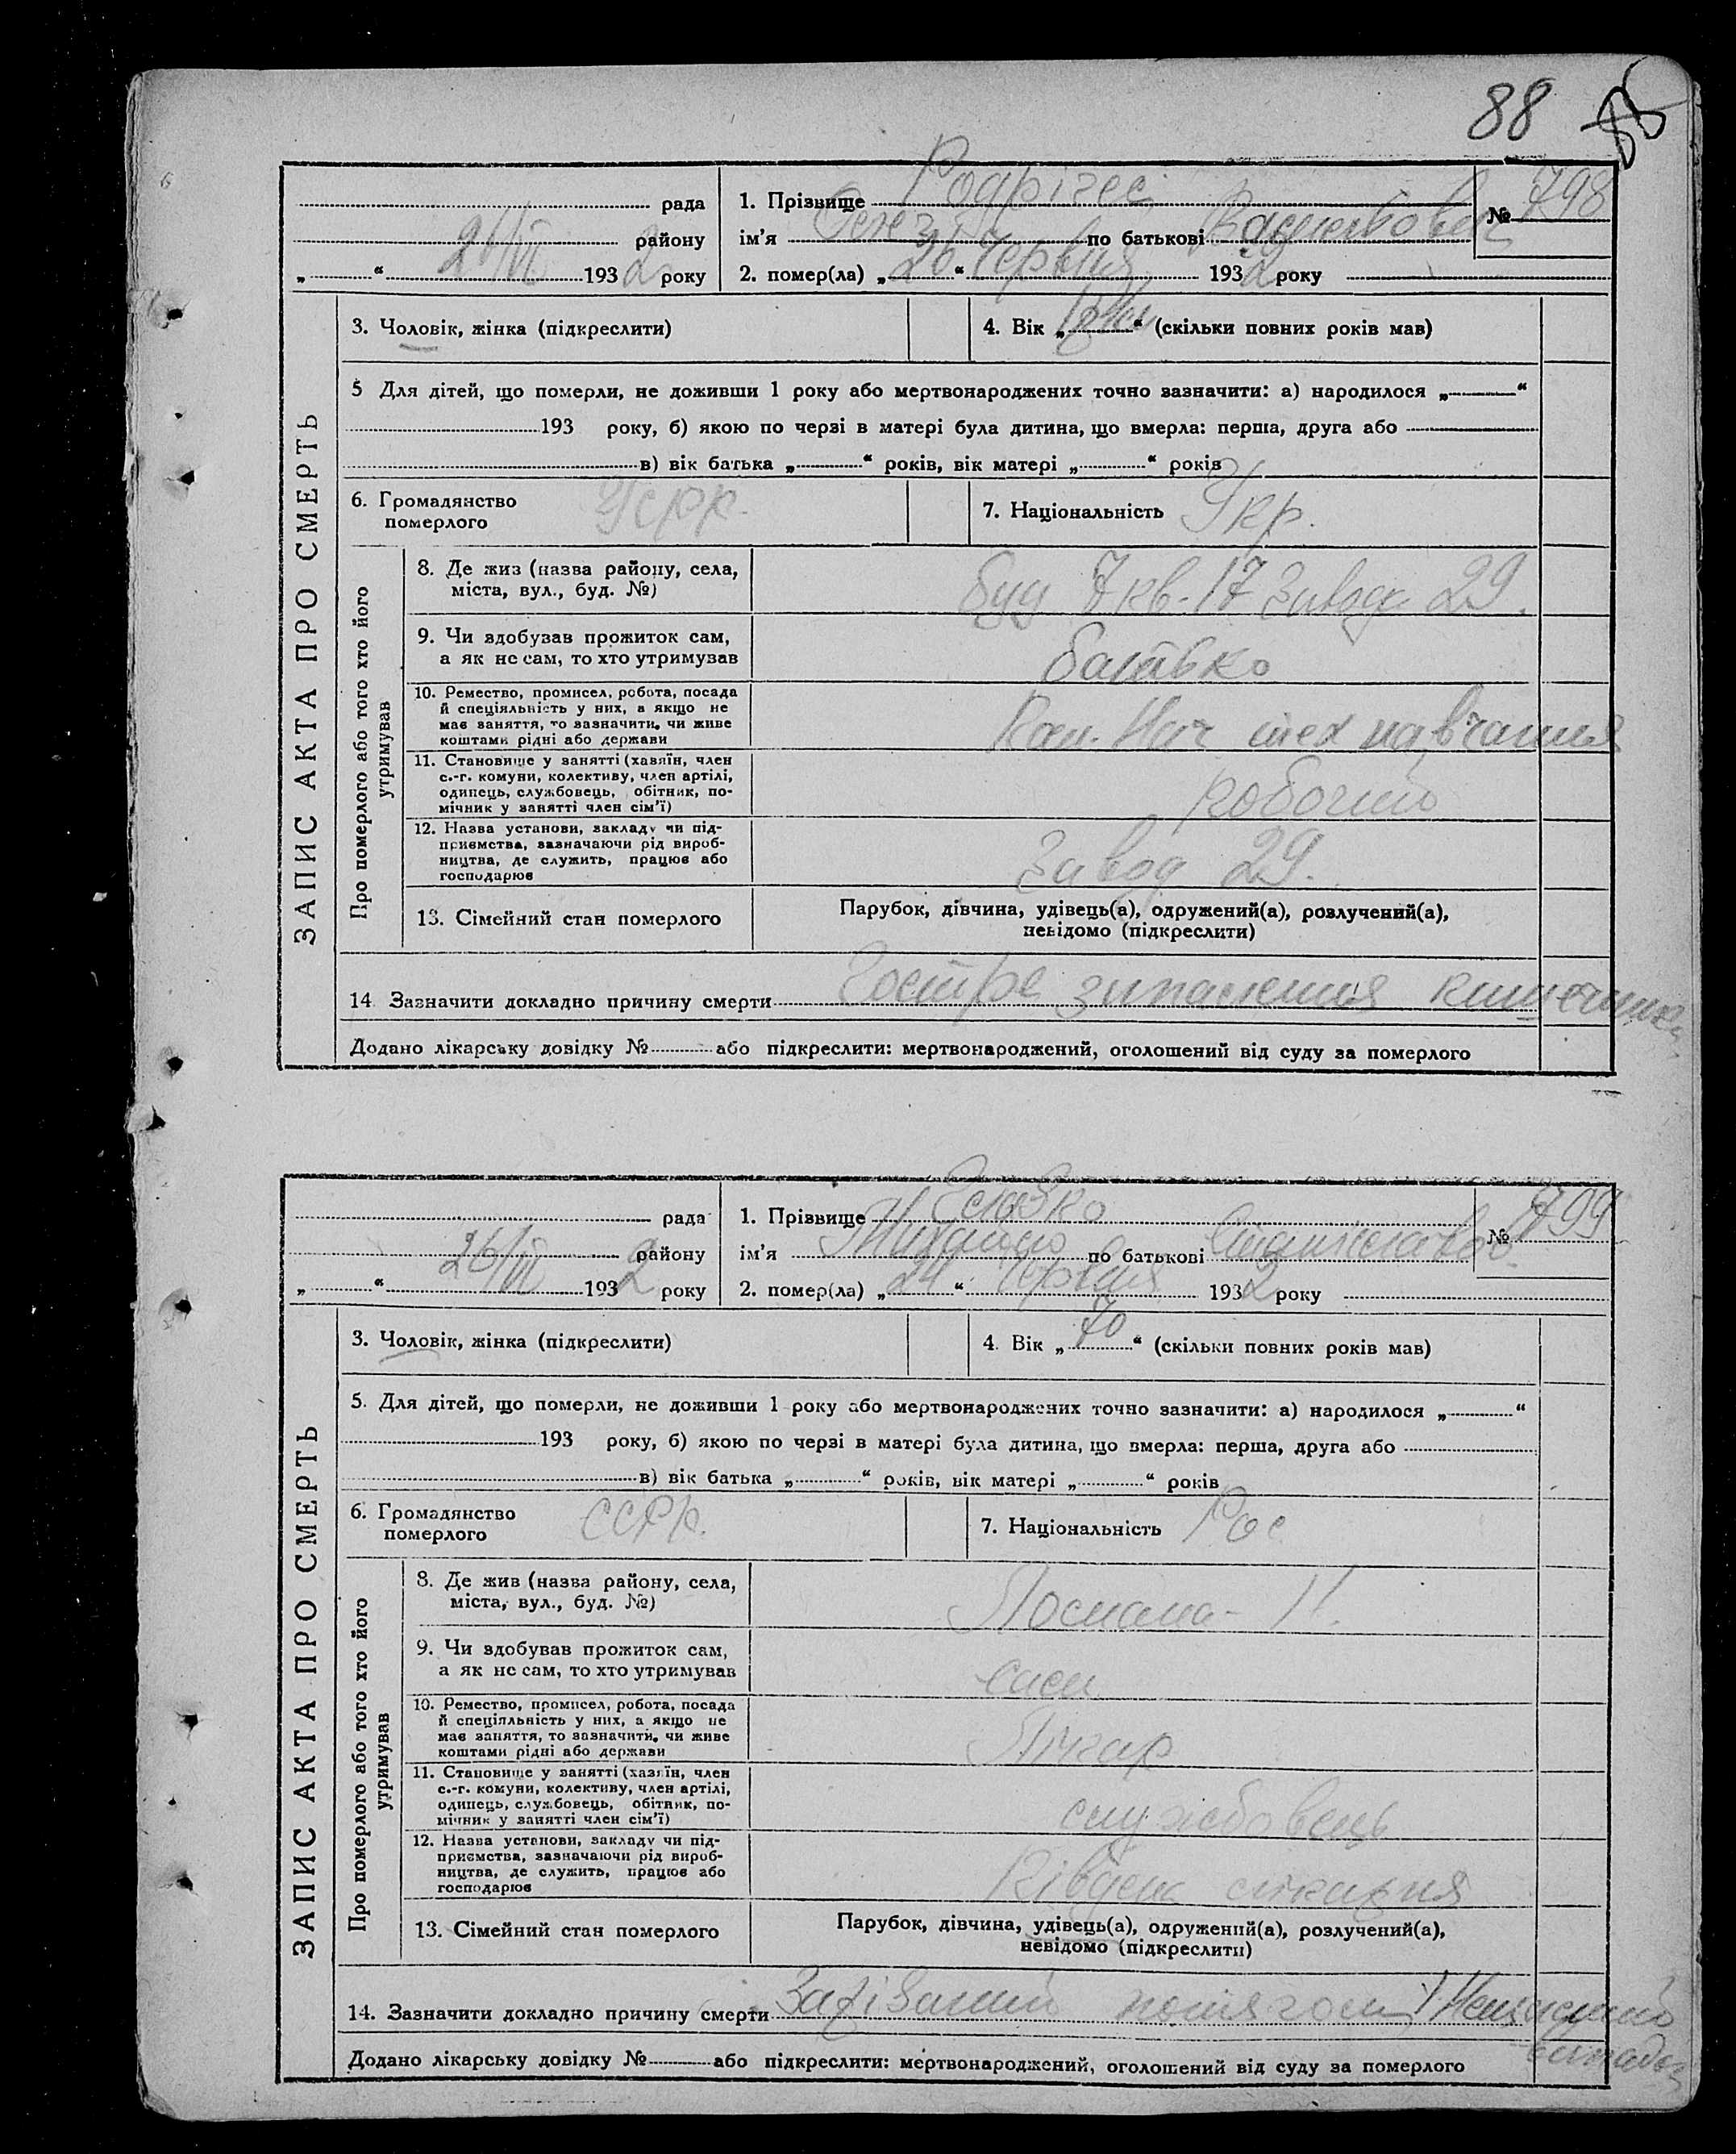 88
ЗАПИС АКТА ПРО СМЕРТЬ
рада
району
26/VI 1932 року
1. Прізвище Родрігес
№ 798
ім'я по батькові
2. помер(ла) „26“ Червня 1932 року
3. Чоловік, жінка (підкреслити)
4. Вік „ “ (скільки повних років мав)
5 Для дітей, що померли, не доживши 1 року або мертвонароджених точно зазначити: а) народилося „ “
193 року, б) якою по черзі в матері була дитина, що вмерла: перша, друга або
в) вік батька „ “ років, вік матері „ “ років
6. Громадянство померлого УСРР.
7. Національність Укр.
Про померлого або того хто його утримував
8. Де жив (назва району, села,
міста, вул., буд. №)
буд 7 кв. 17 Завод 29.
9. Чи здобував прожиток сам,
а як не сам, то хто утримував
батько
10. Ремество, промисел, робота, посада
й спеціяльність у них, а якщо не
має заняття, то зазначити, чи живе
коштами рідні або держави
Нач тех навчання
11. Становище у занятті (хазяїн, член
с.-г. комуни, колективу, член артілі,
одинець, службовець, обітник, по-
мічник у занятті член сім'ї)
робочий
12. Назва установи, закладу чи під-
приємства, зазначаючи рід вироб-
ництва, де служить, працює або
господарює
Завод 29.
13. Сімейний стан померлого
Парубок, дівчина, удівець(а), одружений(а), розлучений(а),
невідомо (підкреслити)
14. Зазначити докладно причину смерти Гостре запалення кишечника
Додано лікарську довідку № або підкреслити: мертвонароджений, оголошений від суду за померлого
ЗАПИС АКТА ПРО СМЕРТЬ
рада
району
26/VI 1932 року
1. Прізвище
№ 799
ім'я Михайло по батькові Станіславов.
2. помер(ла) „24“ Червня 1932 року
3. Чоловік, жінка (підкреслити)
4. Вік „70“ (скільки повних років мав)
5. Для дітей, що померли, не доживши 1 року або мертвонароджених точно зазначити: а) народилося „ “
193 року, б) якою по черзі в матері була дитина, що вмерла: перша, друга або
в) вік батька „ “ років, вік матері „ “ років
6. Громадянство померлого ССРР.
7. Національність Рос
Про померлого або того хто його утримував
8. Де жив (назва району, села,
міста, вул., буд. №)
9. Чи здобував прожиток сам,
а як не сам, то хто утримував
сам
10. Ремество, промисел, робота, посада
й спеціяльність у них, а якщо не
має заняття, то зазначити, чи живе
коштами рідні або держави
Лікар
11. Становище у занятті (хазяїн, член
с.-г. комуни, колективу, член артілі,
одинець, службовець, обітник, по-
мічник у занятті член сім'ї)
службовець
12. Назва установи, закладу чи під-
приємства, зазначаючи рід вироб-
ництва, де служить, працює або
господарює
Півден лікарня
13. Сімейний стан померлого
Парубок, дівчина, удівець(а), одружений(а), розлучений(а),
невідомо (підкреслити)
14. Зазначити докладно причину смерти потягом
Додано лікарську довідку № або підкреслити: мертвонароджений, оголошений від суду за померлого